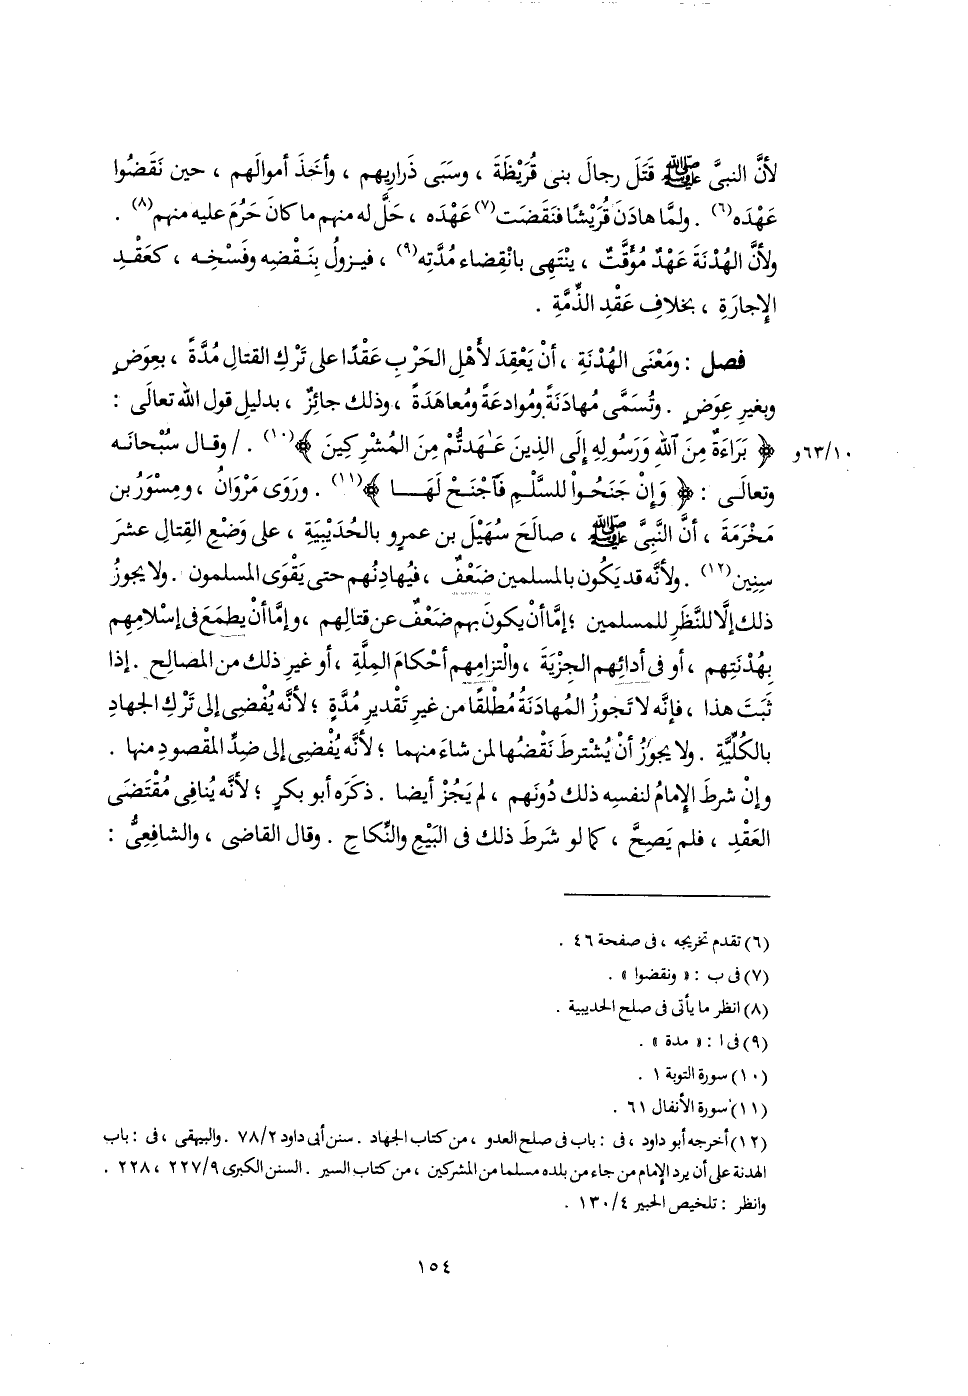 لأنَّ النبىَّ ﷺ قَتَلَ رجالَ بنى قُرَيْظَةَ ، وسَبَى ذَرارِيهم ، وأخَذَ أموالَهم ، حين نَقَضُوا
عَهْدَه(٦) . ولمَّا هادَنَ قُرَيْشًا فنَقَضَت(٧) عَهْدَه ، حَلَّ له منهم ما كانَ حَرُمَ عليه منهم(٨) .
ولأنَّ الهُدْنَةَ عَهْدٌ مُؤَقَّتٌ ، ينْتَهِى بانْقِضاء مُدَّتِه(٩) ، فيـزولُ بِنَـقْضِه وفَسْخِـه ، كعَقْـدِ
الإِجارَةِ ، بخلافِ عَقْدِ الذِّمَّةِ .
فصل : ومَعْنَى الهُدْنَةِ ، أنْ يَعْقِدَ لأَهْلِ الحَرْبِ عَقْدًا على تَرْكِ القتالِ مُدَّةً ، بعِوَضٍ
وبغيرِ عِوَضٍ . وتُسَمَّى مُهادَنَةً ومُوادعَةً ومُعاهَدَةً ، وذلك جائِزٌ ، بدليلِ قول الله تعالَى :
﴿ بَرَاءَةٌ مِنَ اللهِ وَرَسُولِهِ إِلَى الذِينَ عَـٰهَدتُّم مِنَ المُشْرِكِينَ ﴾(١٠) . / وقـال سُبْحانَـه
١٠/٦٣و
وتعالَـى : ﴿ وَإِنْ جَنَحُـوا للسَّلْـمِ فَآجْنَـحْ لَهَـــا ﴾(١١) . ورَوَى مَرْوَانُ ، ومِسْوَرُ بن
مَخْرَمَةَ ، أنَّ النَّبِىَّ ﷺ ، صالَحَ سُهَيْلَ بن عمرٍو بالحُدَيْبِيَةِ ، على وَضْعِ القِتالِ عشرَ
سِنِين(١٢) . ولأنَّه قد يَكُون بالمسلمين ضَعْفٌ ، فيُهادِنُهم حتى يَقْوَى المسلمون . ولا يجوزُ
ذلك إلَّا للنَّظَرِ للمسلمين ؛ إمَّا أن يكونَ بهم ضَعْفٌ عن قتالِهم ، وإمَّا أنْ يطمَعَ فى إسْلامِهم
بِهُدْنَتِهم ، أو فى أدائِهم الجِزْيَةَ ، والْتزامِهم أحْكامَ المِلَّةِ ، أو غيرِ ذلك من المصالِح . إذا
ثَبَتَ هذا ، فإنَّه لا تَجوزُ المُهادَنَةُ مُطْلقًا من غيرِ تَقْديرِ مُدَّةٍ ؛ لأنَّه يُفْضِى إلى تَرْكِ الجهادِ
بالكُلِّيَّةِ . ولا يجوزُ أنْ يُشْترطَ نَقْضُها لمن شاءَ منهما ؛ لأنَّه يُفْضِى إلى ضِدِّ المقْصودِ منها .
وإنْ شرطَ الإِمامُ لنفسِه ذلك دُونَهم ، لم يَجُزْ أيضا . ذكَرَه أبو بكرٍ ؛ لأنَّه يُنافِى مُقْتَضَى
العَقْدِ ، فلم يَصِحَّ ، كما لو شَرطَ ذلك فى البَيْعِ والنِّكاحِ . وقال القاضى ، والشافِعِىُّ :
(٦) تقدم تخريجه ، فى صفحة ٤٦ .
(٧) فى ب : « ونقضوا » .
(٨) انظر ما يأتى فى صلح الحديبية .
(٩) فى ا : « مدة » .
(١٠) سورة التوبة ١ .
(١١) سورة الأنفال ٦١ .
(١٢) أخرجه أبو داود ، فى : باب فى صلح العدو ، من كتاب الجهاد . سنن أبى داود ٢/٧٨ . والبيهقى ، فى : باب
الهدنة على أن يرد الإمام من جاء من بلده مسلما من المشركين ، من كتاب السير . السنن الكبرى ٩/٢٢٧ ، ٢٢٨ .
وانظر : تلخيص الحبير ٤/١٣٠ .
١٥٤